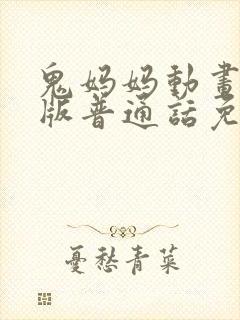 鬼媽媽動畫
版普通話免
憂愁青菜